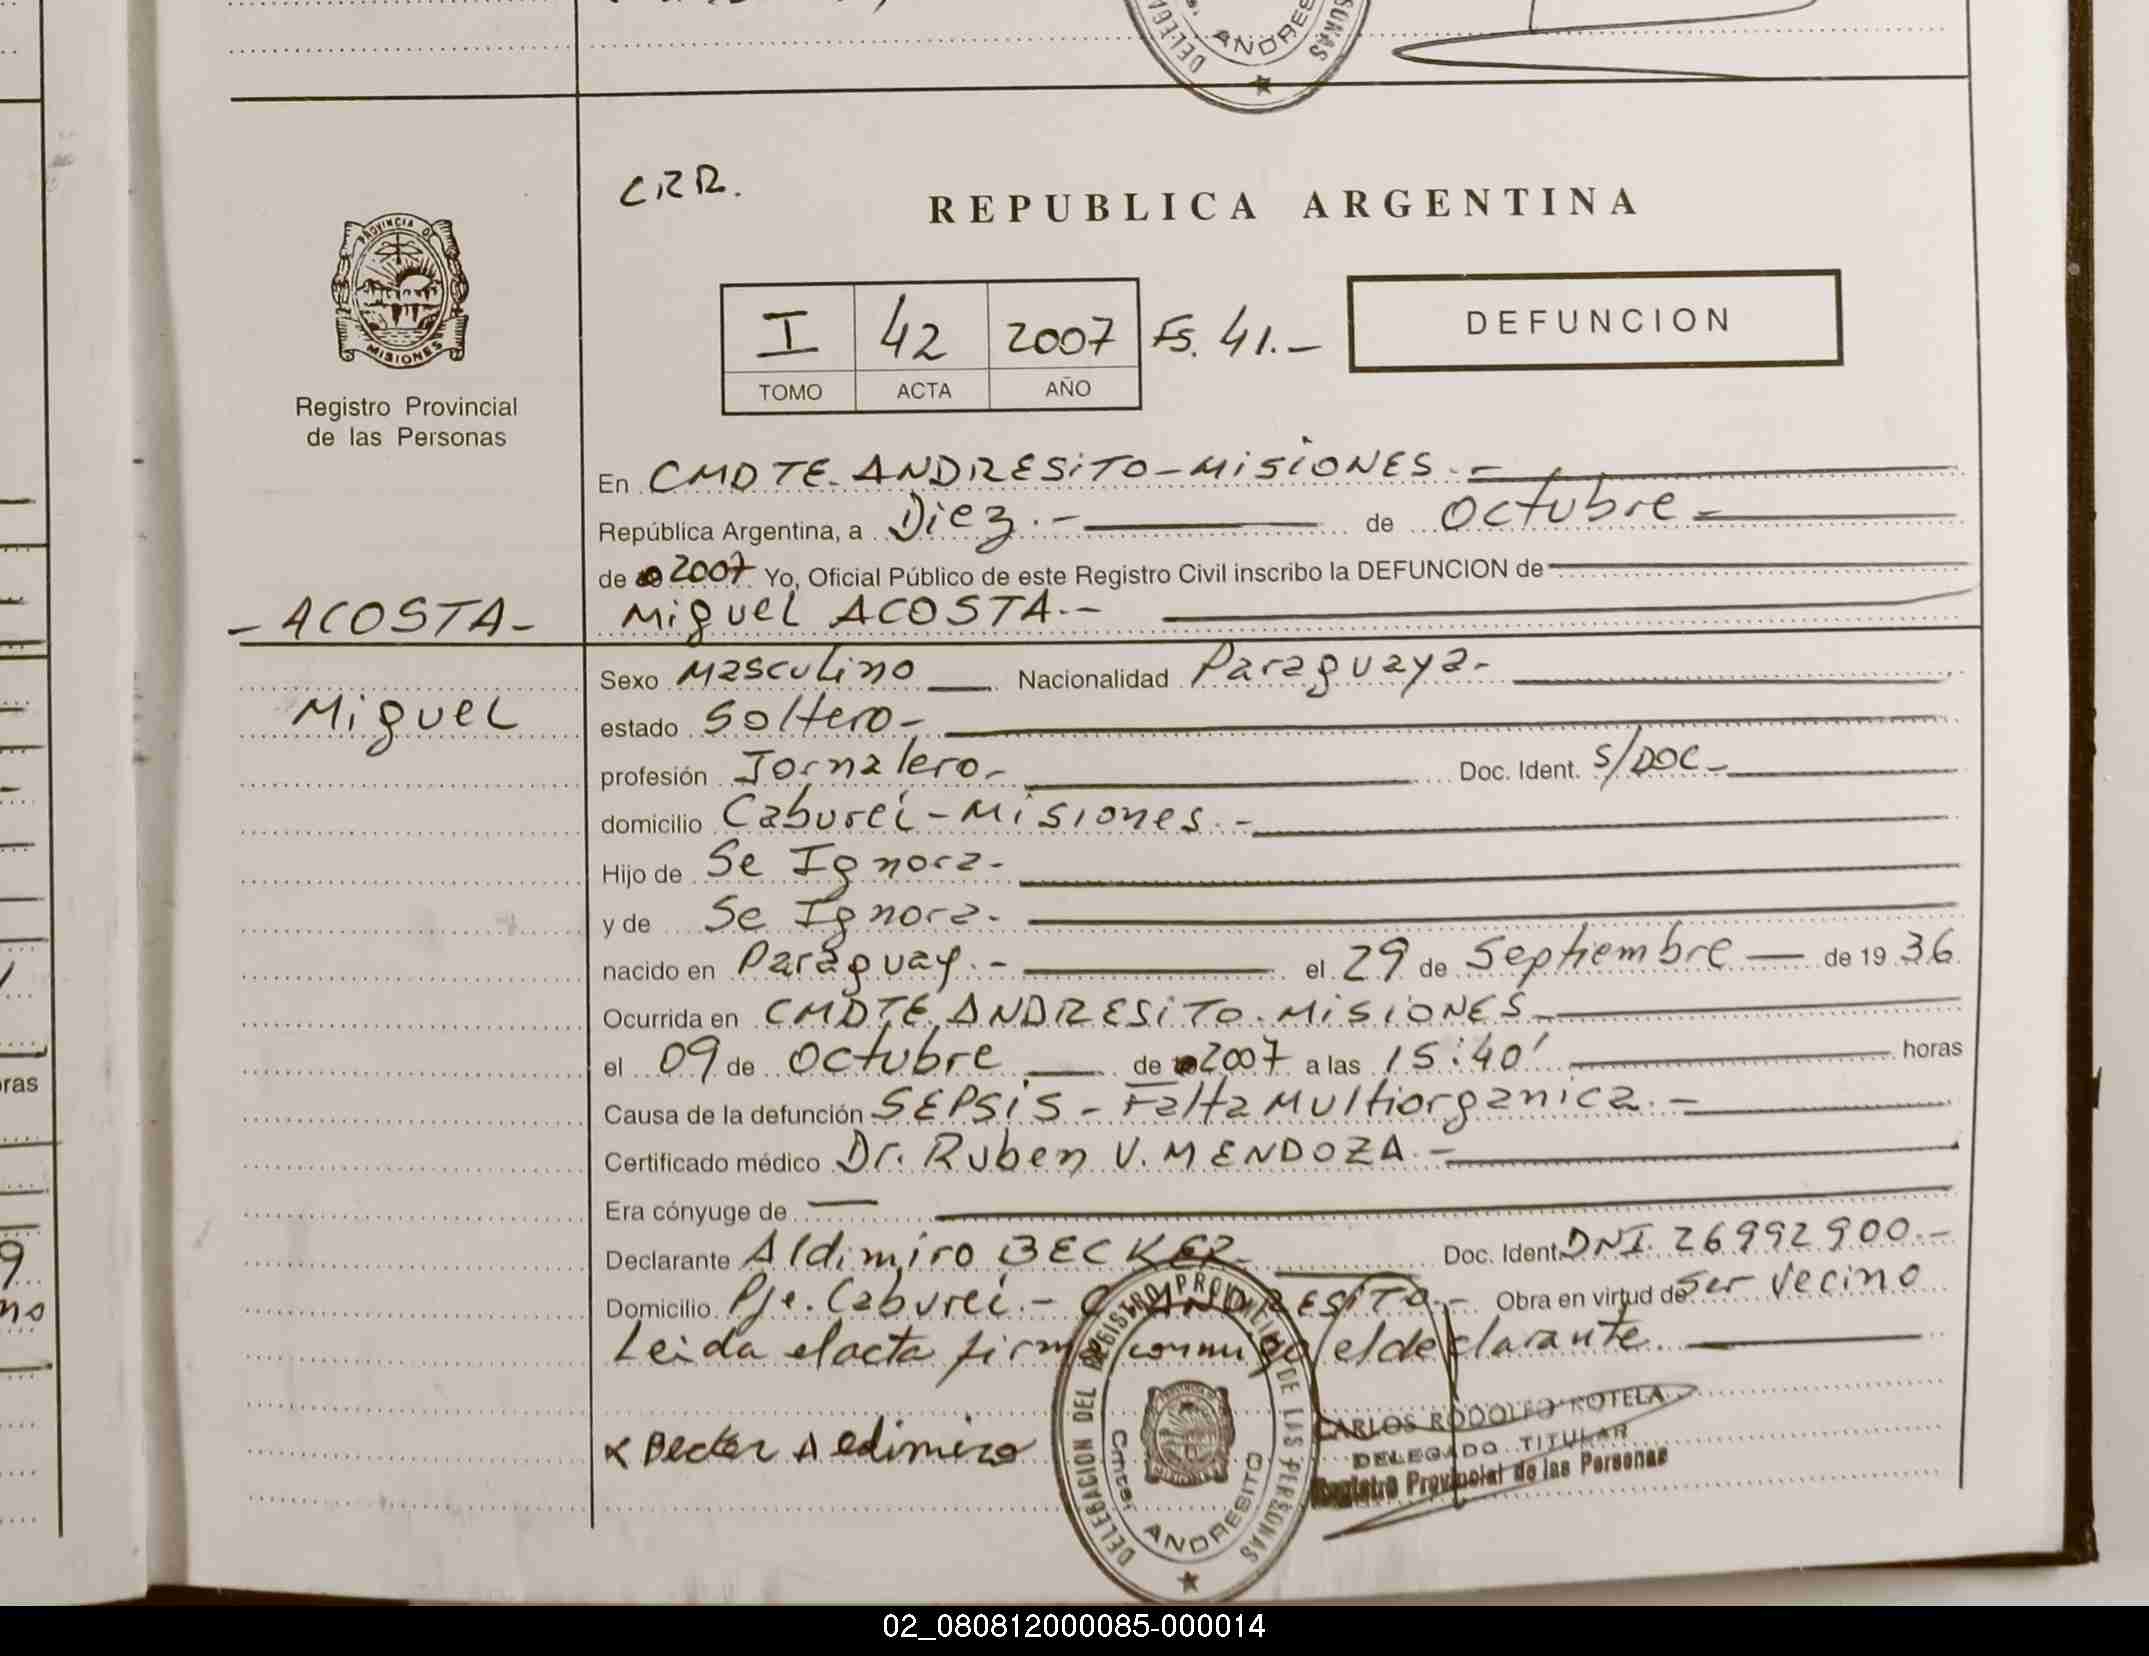 DELEGA
ANDRES
SONAS
C R R.
REPUBLICA ARGENTINA
PROVINCIA D
MISIONES
I 42 2007 Fs. 41.-
TOMO ACTA AÑO
DEFUNCION
Registro Provincial
de las Personas
En CMDTE. ANDRESiTO - MiSiONES.-
República Argentina, a Diez.- de Octubre-
de 2007 Yo, Oficial Público de este Registro Civil inscribo la DEFUNCION de
- ACOSTA -
Miguel ACOSTA.-
Miguel
Sexo Masculino Nacionalidad Paraguaya-
estado Soltero-
profesión Jornalero- Doc. Ident. S/DOC-
domicilio Caburei - Misiones.-
Hijo de Se Ignora-
y de Se Ignora-
nacido en Paraguay.- el 29 de Septiembre de 19 36
Ocurrida en CMDTE. ANDRESiTO. MiSiONES-
el 09 de Octubre de 2007 a las 15:40' horas
Causa de la defunción SEPSiS - Falta Multiorganica.-
Certificado médico Dr. Ruben V. MENDOZA.-
Era cónyuge de —
Declarante Aldimiro BECKER- Doc. Ident. DNI. 26992900.-
Domicilio Pje. Caburei.- C. ANDRESiTO.- Obra en virtud de Ser Vecino
Leida el acta firma conmigo el declarante
x Becker Aldimiro
DELEGACION DEL REGISTRO PROVINCIAL DE LAS PERSONAS
Cmte. ANDRESITO
CARLOS RODOLFO ROTELA
DELEGADO TITULAR
Registro Provincial de las Personas
ras
9
no
02_080812000085-000014